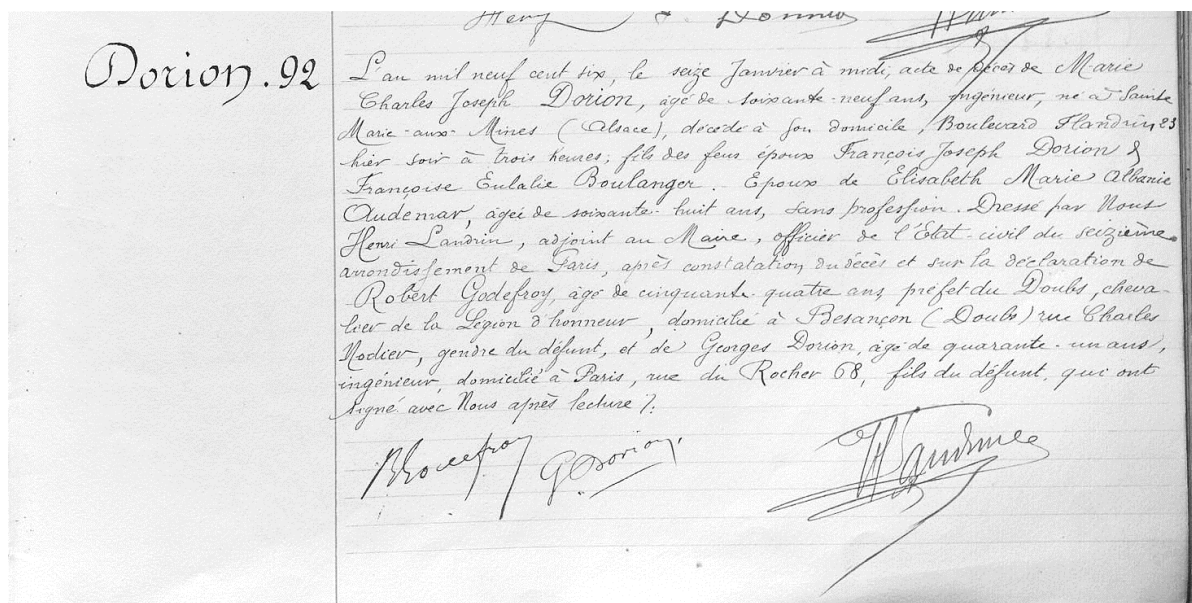 Dorion . 92
L'an mil neuf cent six, le seize Janvier à midi, acte de décès de Marie
Charles Joseph Dorion, âgé de soixante-neuf ans, ingénieur, né à Sainte
Marie-aux-Mines (Alsace), décédé à son domicile, Boulevard Flandrin, 23
hier soir à trois heures; fils des feus époux François Joseph Dorion &
Françoise Eulalie Boulanger. Epoux de Elisabeth Marie Albanie
Audemar, âgée de soixante-huit ans, sans profession. Dressé par Nous
Henri Landrin, adjoint au Maire, officier de l'Etat-civil du seizième
arrondissement de Paris, après constatation du décès et sur la déclaration de
Robert Godefroy, âgé de cinquante-quatre ans, préfet du Doubs, cheva-
lier de la Légion d'honneur, domicilié à Besançon (Doubs) rue Charles
Nodier, gendre du défunt, et de Georges Dorion, âgé de quarante-un ans,
ingénieur, domicilié à Paris, rue du Rocher 68, fils du défunt, qui ont
signé avec Nous après lecture /.
RGodefroy GDorion.